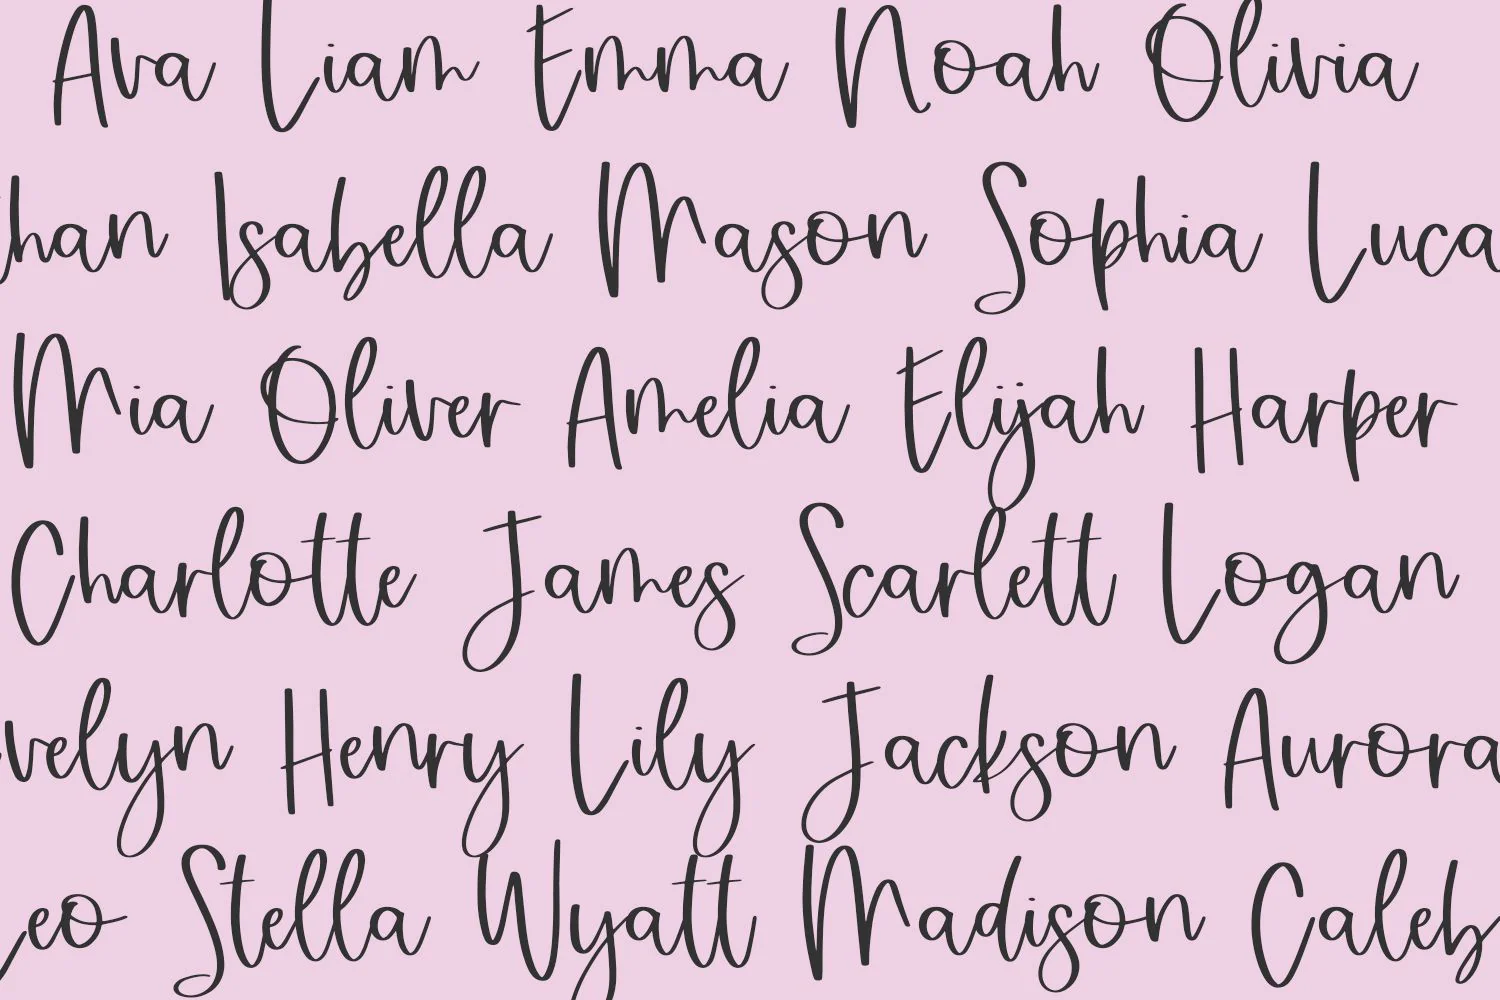 Ava Liam Emma Noah Olivia
han Isabella Mason Sophia Luca
Mia Oliver Amelia Elijah Harper
Charlotte James Scarlett Logan
velyn Henry Lily Jackson Aurora
eo Stella Wyatt Madison Caleb